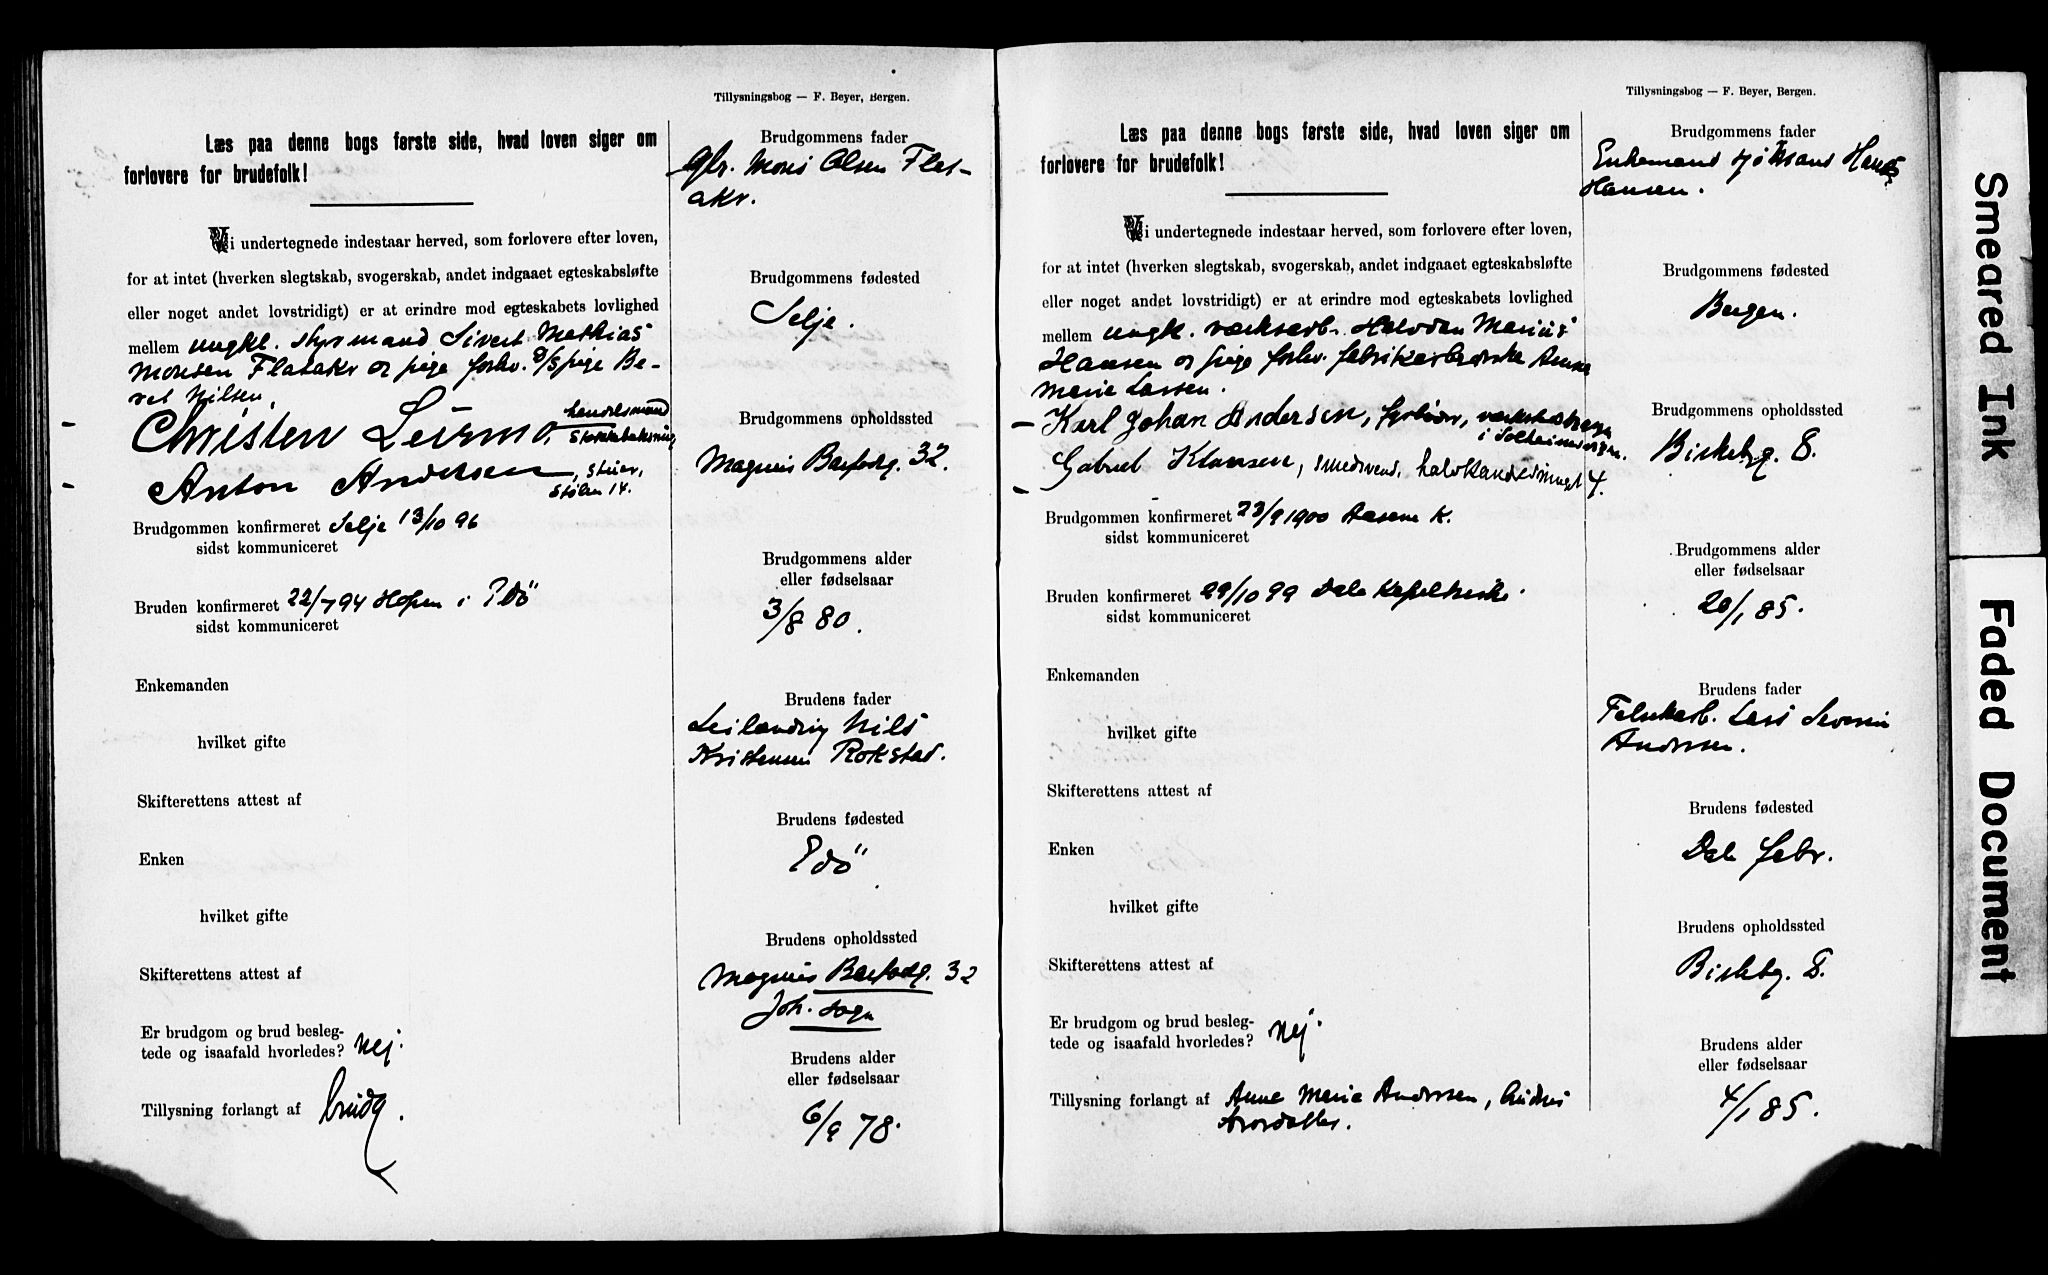 Tillysningsbog — F. Beyer, Bergen.
Læs paa denne bogs første side, hvad loven siger om
forlovere for brudefolk!
Vi undertegnede indestaar herved, som forlovere efter loven,
for at intet (hverken slegtskab, svogerskab, andet indgaaet egteskabsløfte
eller noget andet lovstridigt) er at erindre mod egteskabets lovlighed
mellem ungkl. styrmand Sivert Mathias
Monsen Flatakr og pige forhv. pige Be-
ret Nilsen.
Christen Leirmo, handelsmand
Anton Andersen, stuer,
Stølen 14.
Brudgommen konfirmeret Selje 13/10 96
sidst kommuniceret
Bruden konfirmeret 22/7 94 Hopen i Edö
sidst kommuniceret
Enkemanden
hvilket gifte
Skifterettens attest af
Enken
hvilket gifte
Skifterettens attest af
Er brudgom og brud besleg-
tede og isaafald hvorledes? Nej.
Tillysning forlangt af brudg.
Brudgommens fader
gbr. Mons Olsen Flat-
akr.
Brudgommens fødested
Selje.
Brudgommens opholdssted
Magnus Barfodg. 32.
Brudgommens alder
eller fødselsaar
3/8 80.
Brudens fader
Leilænding Nils
Kristensen Rokstad.
Brudens fødested
Edö
Brudens opholdssted
Magnus Barfodg. 32
Joh. sogn
Brudens alder
eller fødselsaar
6/9 78.
Tillysningsbog — F. Beyer, Bergen.
Læs paa denne bogs første side, hvad loven siger om
forlovere for brudefolk!
Vi undertegnede indestaar herved, som forlovere efter loven,
for at intet (hverken slegtskab, svogerskab, andet indgaaet egteskabsløfte
eller noget andet lovstridigt) er at erindre mod egteskabets lovlighed
mellem ungk. værksarb. Halvdan Marius
Hansen og pige forhv. fabrikarbeiderske Anna
Marie Larsen.
Karl Johan Andersen, fyrbøder,
i Solheimsvigen.
Gabriel Klausen, smedsvend, 4.
Brudgommen konfirmeret 23/9 1900 Aasene K.
sidst kommuniceret
Bruden konfirmeret 29/10 99 Dale Kapelkirke.
sidst kommuniceret
Enkemanden
hvilket gifte
Skifterettens attest af
Enken
hvilket gifte
Skifterettens attest af
Er brudgom og brud besleg-
tede og isaafald hvorledes? Nej.
Tillysning forlangt af Anne Marie Andersen,
Brudgommens fader
Enkemand Hans
Hansen.
Brudgommens fødested
Bergen.
Brudgommens opholdssted
Birkebg. 8.
Brudgommens alder
eller fødselsaar
20/1 85.
Brudens fader
Fabrikarb. Lars Severin
Andersen.
Brudens fødested
Dale fabr.
Brudens opholdssted
Birkebg. 8.
Brudens alder
eller fødselsaar
4/1 85.
Smeared Ink
Faded Document